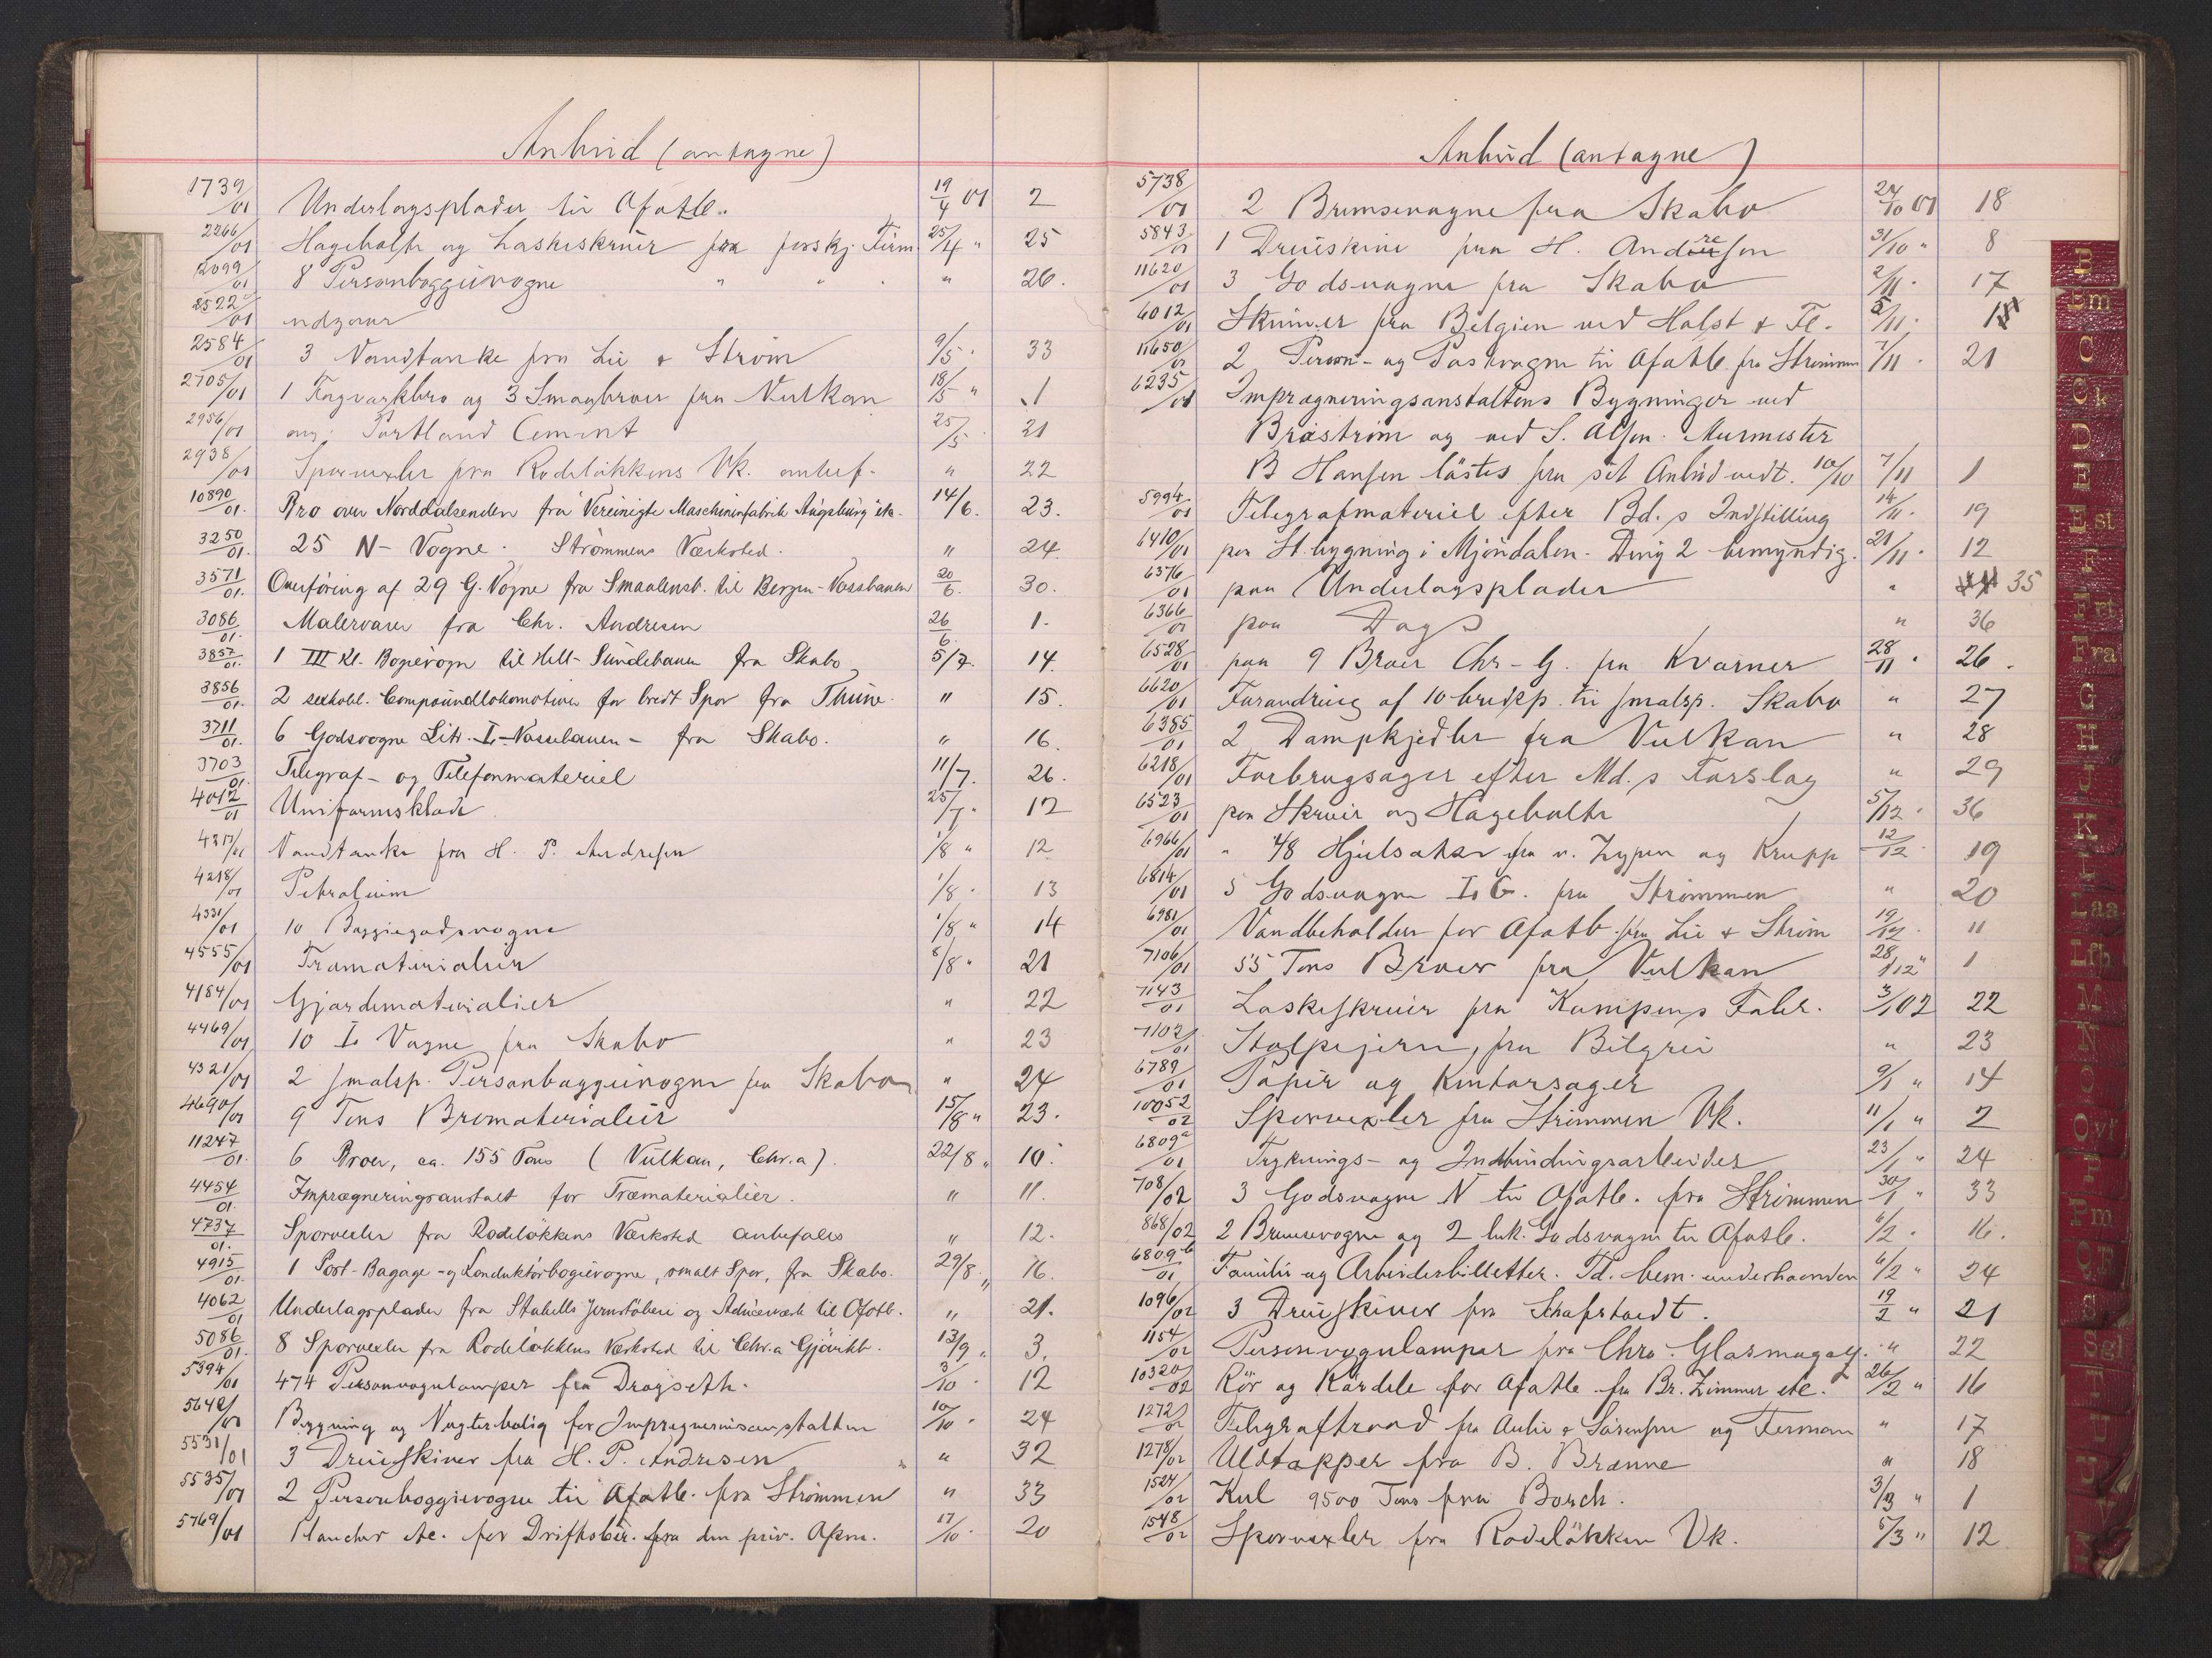 Anbud (antagne)
1739/01 Underlagsplader til Ofotb. 19/4 01 2
2266/01 Hagebolte og Laskeskruer fra forskj. Firm. 25/4 " 25
2099/01 8 Personboggievogne " " " 26.
2522/01
2584/01 3 Vandtanke fra Lie & Strøm 9/5 " 33
2705/01 1 Fagværkbro og 3 Smaabroer fra Vulkan 18/5 " 1
2956/01 ang. Portland Cement 25/5 21
2938/01 Sporvexler fra Rodeløkkens Vk. anbef. " 22
10890/01. Bro over Norddalsenden fra Vereinigte Maschinenfabrik Augsburg etc. 14/6. 23.
3250/01. 25 N-Vogne. Strømmens Værksted. " 24.
3571/01. Overføring af 29 G. Vogne fra Smaalensb. til Bergen-Vossbanen 20/6. 30.
3086/01. Malervarer fra Chr. Andresen 26/6. 1.
3857/01. 1 III Kl. Bogievogn til Hell-Sundebanen fra Skabo 5/7. 14.
3856/01. 2 sexkobl. Compoundlokomotiver for bredt Spor fra Thune. " 15.
3711/01. 6 Godsvogne Litr. L-Vossebanen- fra Skabo. " 16.
3703/01. Telegraf- og Telefonmateriel 11/7. 26.
4012/01 Uniformsklæde 25/7. 12
4217/01 Vandtanke fra H. P. Andresen 1/8 " 12
4218/01 Petroleum 1/8. 13
4331/01 10 Boggiegodsvogne 1/8 " 14
4555/01 Træmaterialier 8/8 " 21
4184/01 Gjærdematerialier " 22
4469/01 10 Lo Vogne fra Skabo " 23
4321/01 2 smalsp. Personboggievogne fra Skabo " 24
4690/01 9 Tons Bromaterialier 15/8 " 23.
11247/01. 6 Broer, ca. 155 Tons (Vulkan, Chr.a). 22/8 " 10.
4454/01. Imprægneringsanstalt for Træmaterialier. " 11.
4737/01. Sporvexler fra Rodeløkkens Værksted anbefales " 12.
4915/01. 1 Post-Bagage-og Konduktørbogievogne, smalt Spor, fra Skabo. 29/8. " 16.
4062/01 Underlagsplader fra Stubells Jernstøberi og Valseværk til Ofotb. " 21.
5086/01. 8 Sporvexler fra Rodeløkkens Værksted til Chr.a Gjøvikb. 13/9 " 3.
5394/01 474 Personvognlamper fra Dragseth. 3/10. 12
5642/01 Bygning og Vogterbolig for Imprægneringsanstalten 10/10. 24
5531/01 3 Dreieskiver fra H. P. Andresen " 32
5535/01 2 Personboggievogne til Ofotb. fra Strømmen " 33
5769/01 Plancher etc. for Driftsber. fra den priv. Opm. 17/10. 20
Anbud (antagne)
5738/01 2 Bremsevogne fra Skabo 24/10 01 18
5843/01 1 Dreieskive fra H. Andresen 31/10 " 8
11620/01 3 Godsvogne fra Skabo 2/11. 17
6012/01 Skinner fra Belgien ved Holst & Fl. 5/11.
11650/01 2 Person- og Postvogne til Ofotb. fra Strømmen 7/11. 21
6235/01 Imprægneringsanstaltens Bygninger ved
Brøstrøm og ved S. Olsen. Murmester
B Hansen løstes fra sit Anbud vedt. 10/10 7/11 1
5994/01 Telegrafmateriel efter Bd.s Indstilling 14/11. 19
6410/01 paa St. bygning i Mjøndalen. Dirig 2 bemyndig. 21/11. 12
6376/01 paa Underlagsplader " 35
6366/01 paa Dogs " 36
6528/01 paa 9 Broer Chr-G. fra Kværner 28/11. 26.
6620/01 Forandring af 10 bredsp. til smalsp. Skabo " 27
6385/01 2 Dampkjedler fra Vulkan " 28
6218/01 Forbrugsager efter Md.s Forslag " 29
6523/01 paa Skruer og Hagebolte 5/12. 36
6966/01 " 48 Hjulsatser fra v. Zypen og Krupp 12/12. 19
6814/01 5 Godsvogne Lo G. fra Strømmen " 20
6981/01 Vandbeholder for Ofotb. fra Lie & Strøm 19/12. 11
7106/01 55 Tons Broer fra Vulkan 28/12 " 1
7143/01 Laskeskruer fra Kampens Fabr. 3/1 02 22
7102/01 Stolpejern, fra Bilgrei " 23
6789/01 Papir og Kontorsager 9/1 " 14
10052/02 Sporvexler fra Strømmen Vk. 11/1 " 2
6809a/01 Tryknings- og Indbindingsarbeider 23/1 " 24
708/02 3 Godsvogne N til Ofotb. fra Strømmen 30/1 " 33
868/02 2 Bremsevogne og 2 luk. Godsvogne til Ofotb. 6/2. 16.
6809b/01 Familie og Arbeiderbilletter. Td. bem. underhaanden 6/2 " 24
1096/02 3 Dreieskiver fra Schafstaedt. 19/2 " 21
1154/02 Personvognlamper fra Chra. Glasmagaz. " 22
10320/02 Rør og Rørdele for Ofotb. fra Br. Zimmer etc. 26/2 " 16
1272/02 Telegraftraad fra Aulie & Sørensen og Ferman " 17
1278/02 Uldtæpper fra B. Brænne " 18
1524/02 Kul 9500 Tons fra Borch. 3/3 " 1
1548/02 Sporvexler fra Rodeløkken Vk. 5/3 " 12
B
C
E
Est
F
Fra
G
H
J
K
Laa
M
N
O
P
Pm
S